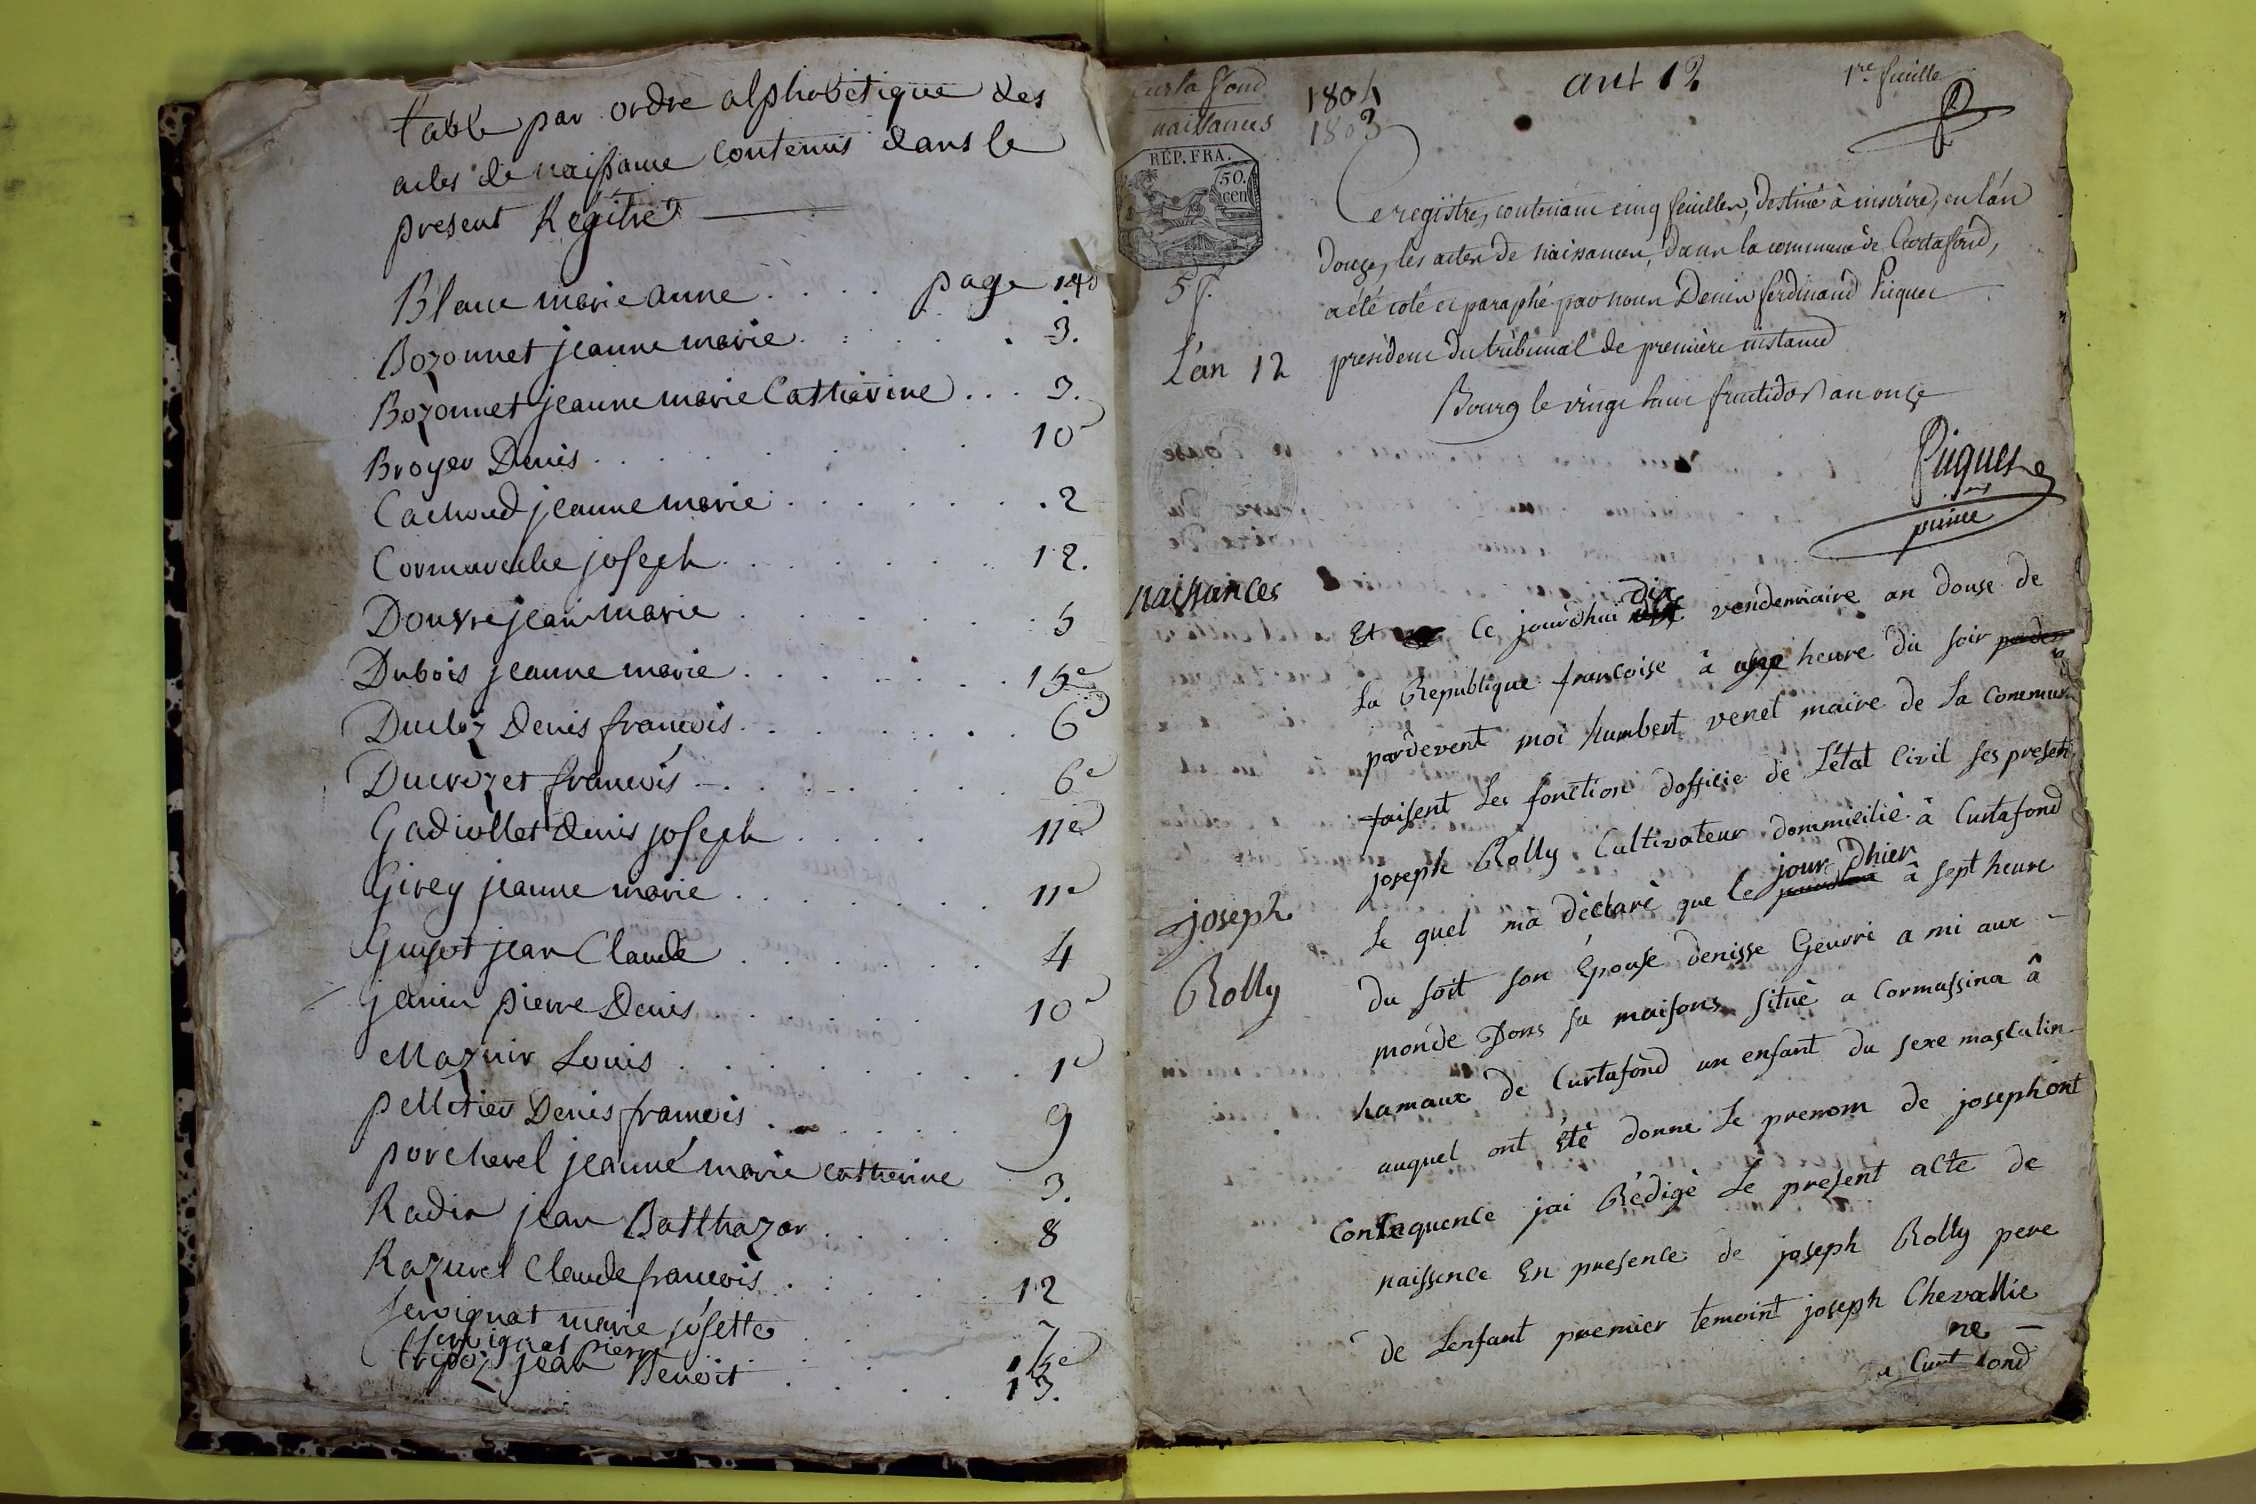 table par ordre alphabétique des
actes de naissance contenus dans le
present Régitre
Blanc marie anne . . . . page 14e
Bozonnet jeanne marie . . . . . 3.
Bozonnet jeanne marie Catherine . . . 3.
Broyer Denis . . . . . . . 10e
Cachoud jeanne marie . . . . . . . 2
Cormareche joseph . . . . . . . 12.
Douvre jean marie . . . . . . 5
Dubois jeanne marie . . . . . . . 15e
Ducloz Denis francois . . . . . . . 6e
Ducrozet francois . . . . . . . 6e
Gadiollet denis joseph . . . . 11e
Girey jeanne marie . . . . . . . 11e
Guyot jean Claude . . . . . . . 4
janin pierre Denis . . . . . 10e
Mazuir Louis . . . . . . . . 1e
pelletier Denis francois . . . . . . 9
porcherel jeanne marie catherine 3.
Radix jean Balthazar . . . . . . 8
Razurel Claude francois . . . . . 12
servignat marie josette . . . 7
servignat pierre . . . . 15e
tripoz jean Benoit . . . . . 13.
Curtafond
naissances
1804
1803
ant 12
1re feuille
RÉP. FRA.
50.
cen
5 f.
L'an 12
Ce registre, contenant cinq feuilles, destiné à inscrire, en l'an
douze, les actes de naissances, dans la commune de Curtafond,
a été coté et paraphé par nous Denis ferdinand Piquet
président du tribunal de première instance
Bourg le vingt huit fructidor an onze
Piquet
naissances
Et ce jourdhui dix vendemiaire an douse de
La Republique francoise à une heure du soir
pardevent moi humbert venet maire de La Commune
faisent Les fonction dofficie de L'état Civil ses presenté
joseph Rolly Cultivateur dommicilié à Curtafond
Le quel ma déclaré que Le jour dhier à sept heure
joseph
Rolly
du soit son Épouse denisse Geuvre a mi aux
monde Dons sa maisons situé a Cormassina à
hamaux de Curtafond un enfant du sexe masculin
auquel ont été donne Le prenom de joseph ont
Consequence jai Rédigé Le present acte de
naissence En presence de joseph Rolly pere
de Lenfant premier temoint joseph Chevallie
ne